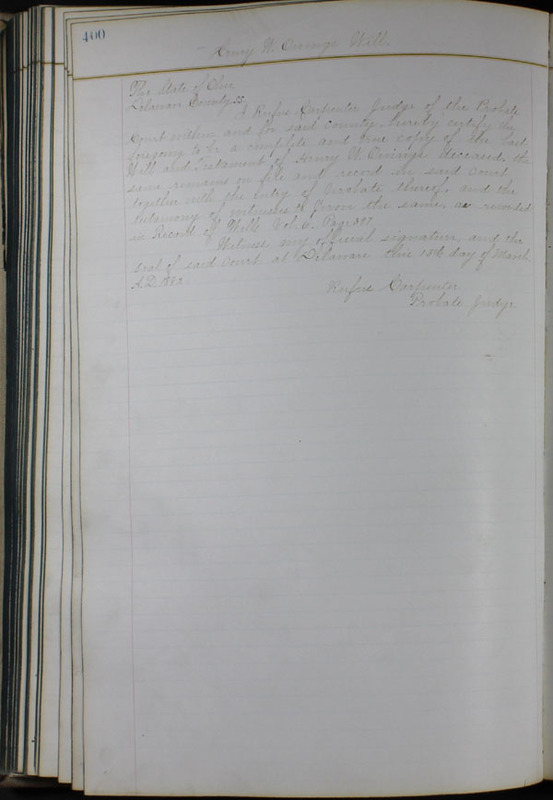 400
Henry W. Will.
The State of Ohio
Delaware County SS.
I Rufus Carpenter Judge of the Probate
Court within and for said County, hereby certify the
foregoing to be a complete and true copy of the Last
Will and Testament of Henry W. deceased, the
same remains on file and record in said Court,
together with the entry of Probate thereof, and the
testimony of witnesses to prove the same, as recorded
in Record of Wills Vol. 6. Page
Witness my official signature, and the
seal of said Court at Delaware this day of March
A.D.
Rufus Carpenter
Probate Judge